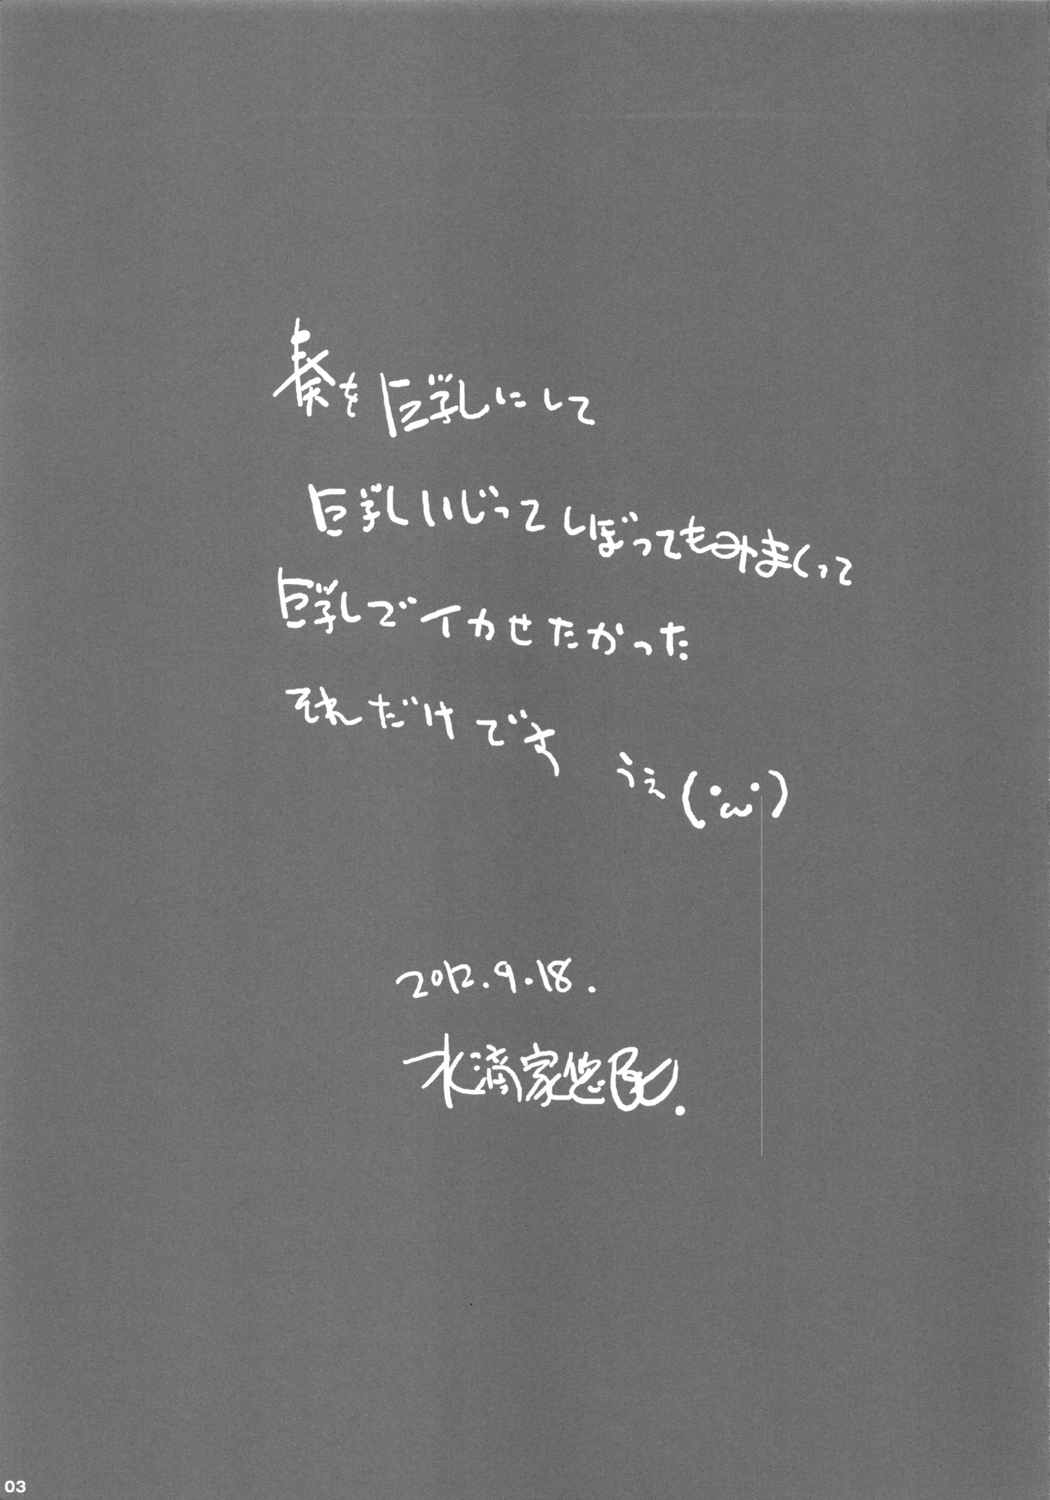 奏を巨乳にして
巨乳いじってしぼってもみまくって
巨乳でイカせたかった
それだけです うぇ(・ω・)
2012.9.18.
水滴家悠
03